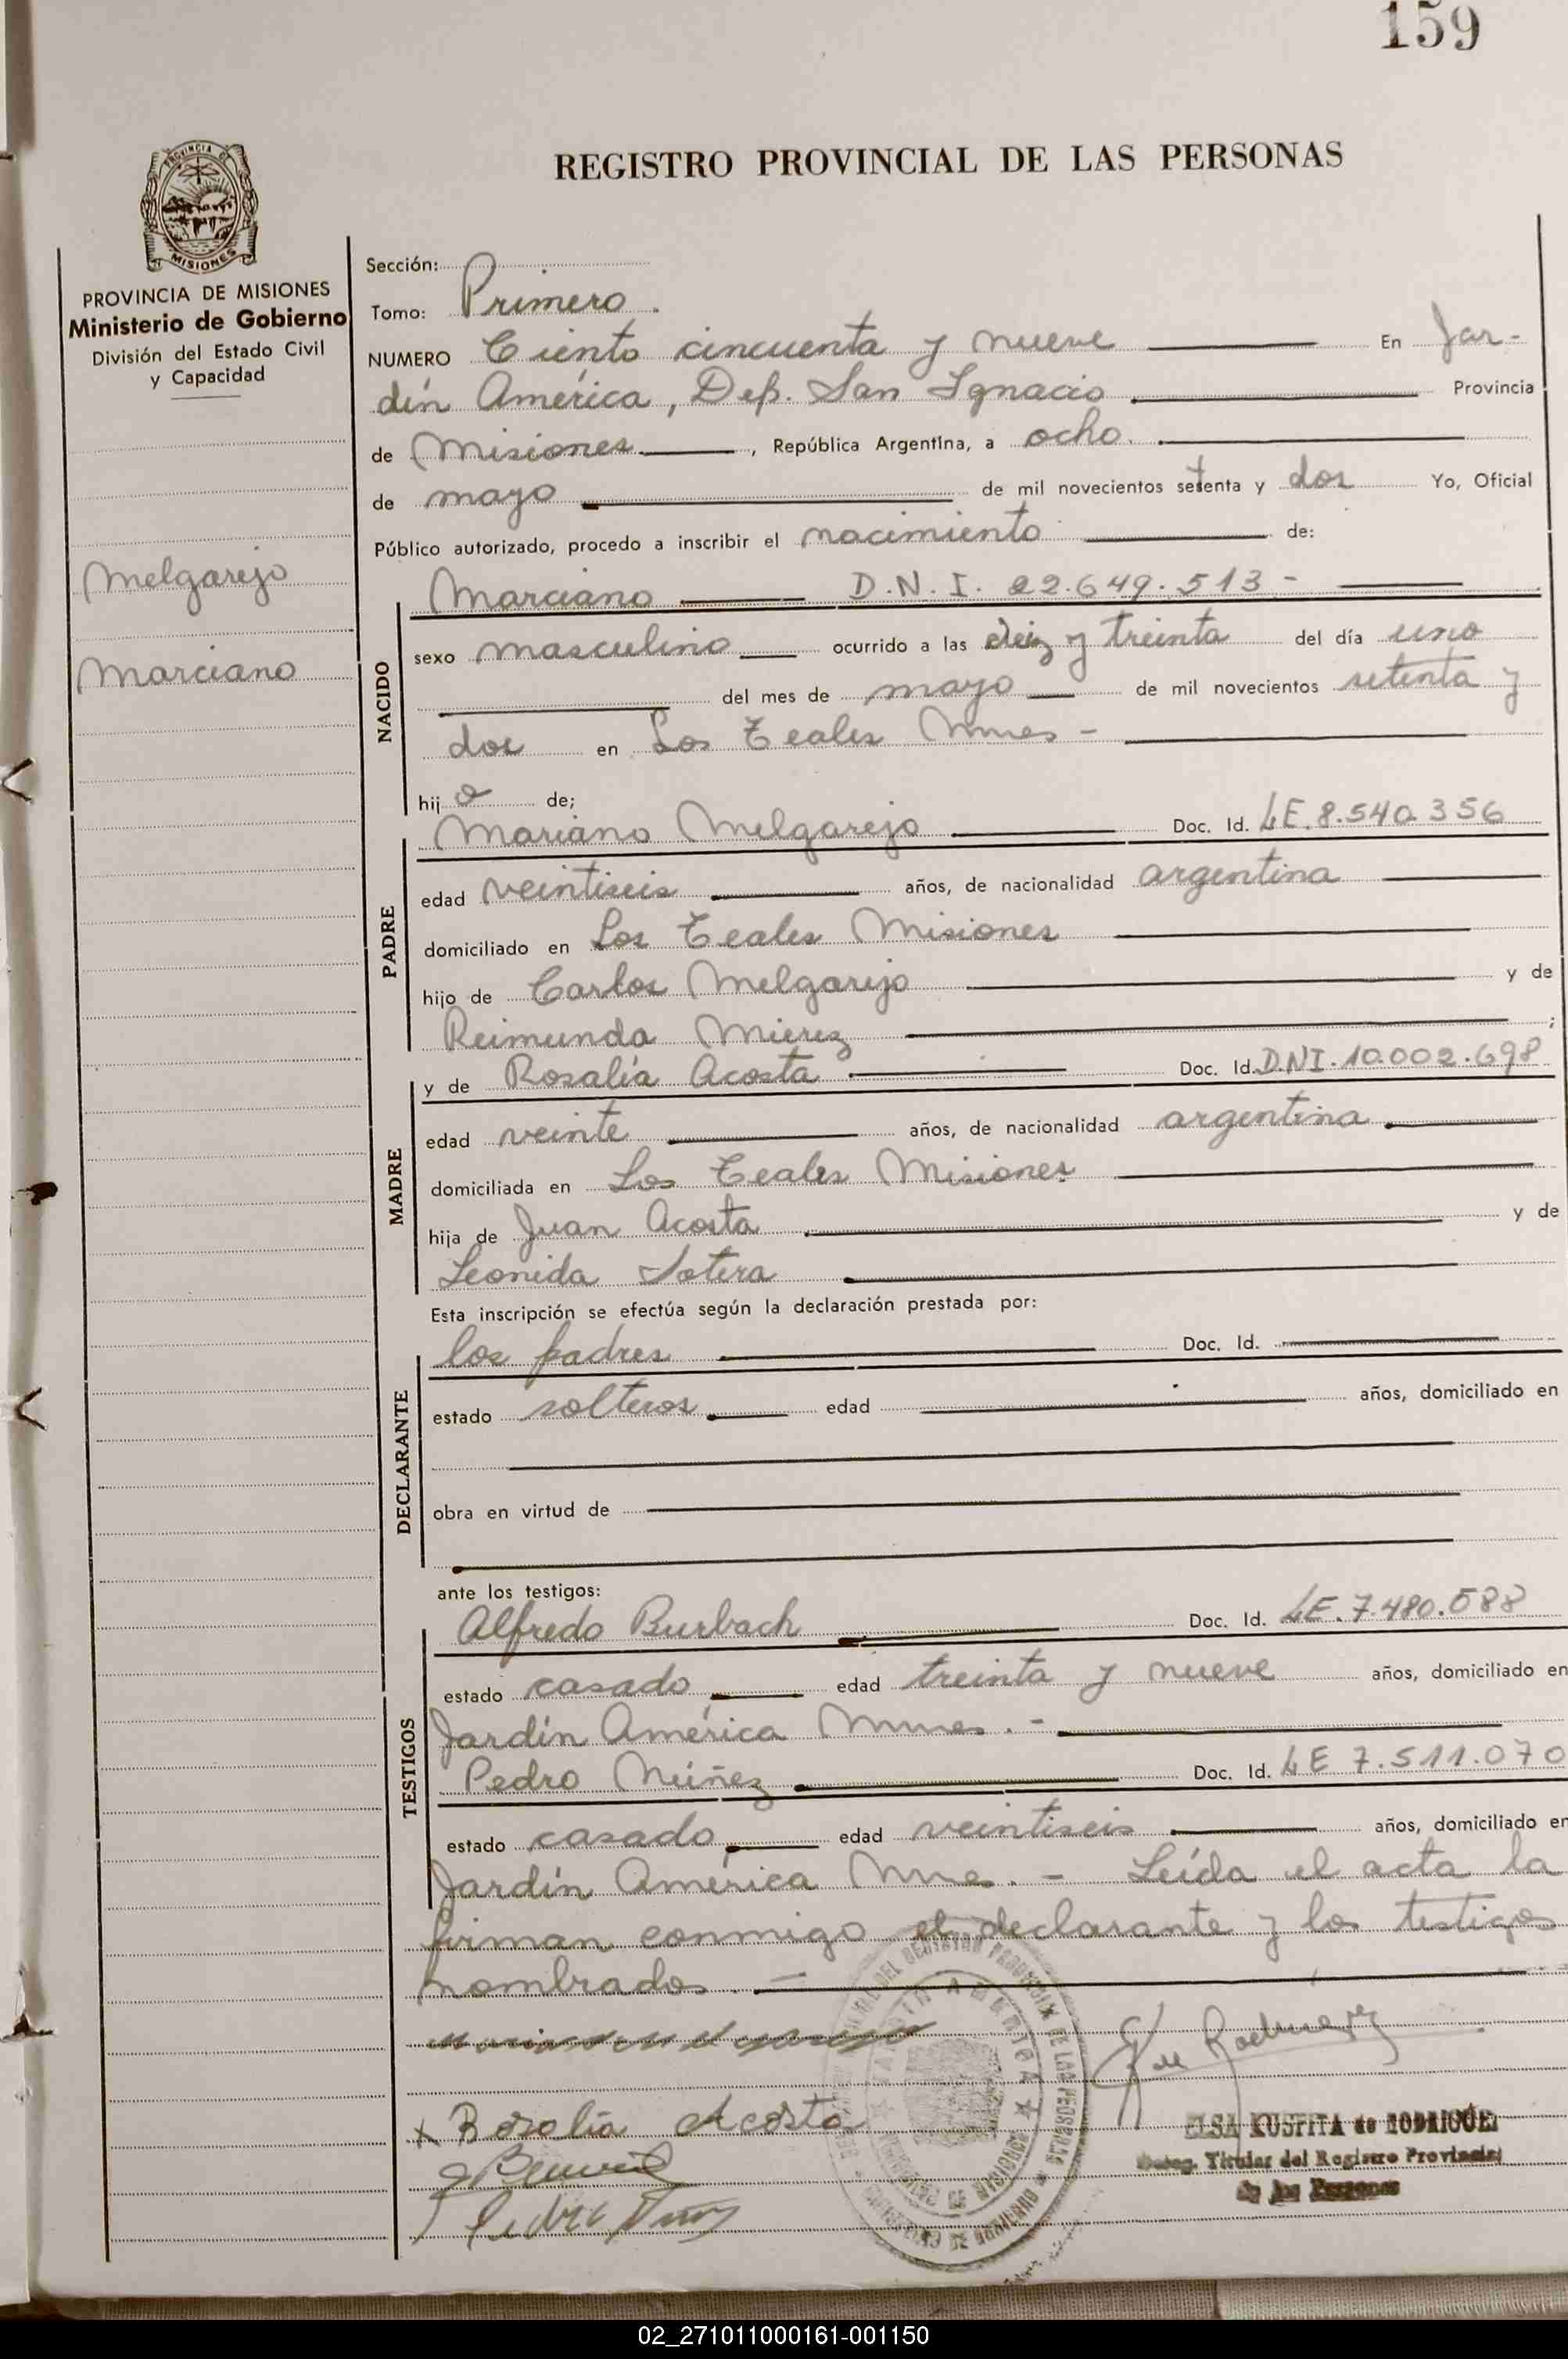 159
REGISTRO PROVINCIAL DE LAS PERSONAS
PROVINCIA DE
MISIONES
PROVINCIA DE MISIONES
Ministerio de Gobierno
División del Estado Civil
y Capacidad
Melgarejo
Marciano
Sección:
Tomo: Primero.
NUMERO Ciento cincuenta y nueve En Jar-
dín América, Dep. San Ignacio Provincia
de Misiones, República Argentina, a ocho.
de mayo de mil novecientos setenta y dos Yo, Oficial
Público autorizado, procedo a inscribir el nacimiento de:
NACIDO
Marciano D.N.I. 22.649.513-
sexo masculino ocurrido a las diez y treinta del día uno
del mes de mayo de mil novecientos setenta y
dos en Los Teales Mnes-
hijo de;
PADRE
Mariano Melgarejo Doc. Id. LE.8.540.356
edad veintiseis años, de nacionalidad argentina
domiciliado en Los Teales Misiones
hijo de Carlos Melgarejo y de
Reimunda Mierez ;
MADRE
y de Rosalía Acosta Doc. Id. DNI.10.002.698
edad veinte años, de nacionalidad argentina
domiciliada en Los Teales Misiones
hija de Juan Acosta y de
Leonida Sotera
Esta inscripción se efectúa según la declaración prestada por:
DECLARANTE
los padres Doc. Id.
estado solteros edad años, domiciliado en
obra en virtud de
ante los testigos:
TESTIGOS
Alfredo Burbach Doc. Id. LE.7.480.588
estado casado edad treinta y nueve años, domiciliado en
Jardín América Mnes.-
Pedro Núñez Doc. Id. LE 7.511.070
estado casado edad veintiseis años, domiciliado en
Jardín América Mnes.- Leída el acta la
firman conmigo el declarante y los testigos
nombrados.-
x Rosalia Acosta
ELSA KUSPITA de RODRIGUEZ
Deleg. Titular del Registro Provincial
de las Personas
02_271011000161-001150